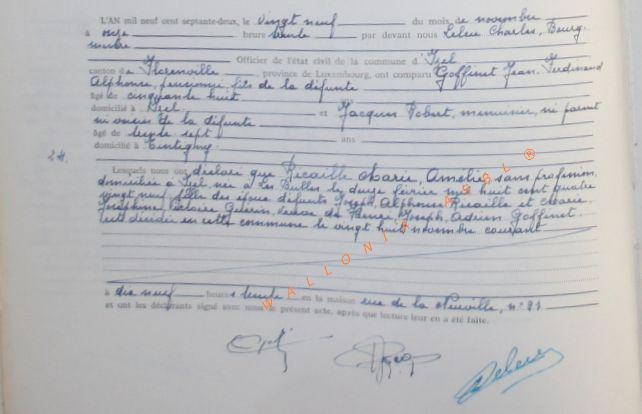 L'AN mil neuf cent septante-deux, le vingt neuf du mois de novembre
à onze heure trente par devant nous Leleu Charles, Bourg-
mestre
Officier de l'état civil de la commune d'Izel
canton de Florenville, province de Luxembourg, ont comparu Goffinet Jean, Ferdinand
Alphonse, pensionné, fils de la défunte
âgé de cinquante huit
domicilié à Izel et Jacques Robert, menuisier, ni parent
ni voisin de la défunte
âgé de trente sept ans
domicilié à Tintigny
24.
Lesquels nous ont déclaré que Ricaille Marie, Amélie, sans profession,
domiciliée à Izel née à Les Bulles le douze février mil huit cent quatre
vingt neuf fille des époux défunts Joseph, Alphonse Ricaille et Marie,
Joséphine, Victoire Guérin, veuve de Joseph, Adrien Goffinet.
est décédée en cette commune le vingt huit novembre courant
à dix neuf heures trente en la maison rue de la Neuville, n° 91
et ont les déclarants signé avec nous le présent acte, après que lecture leur en a été faite.
WALLONIA ASBL ®